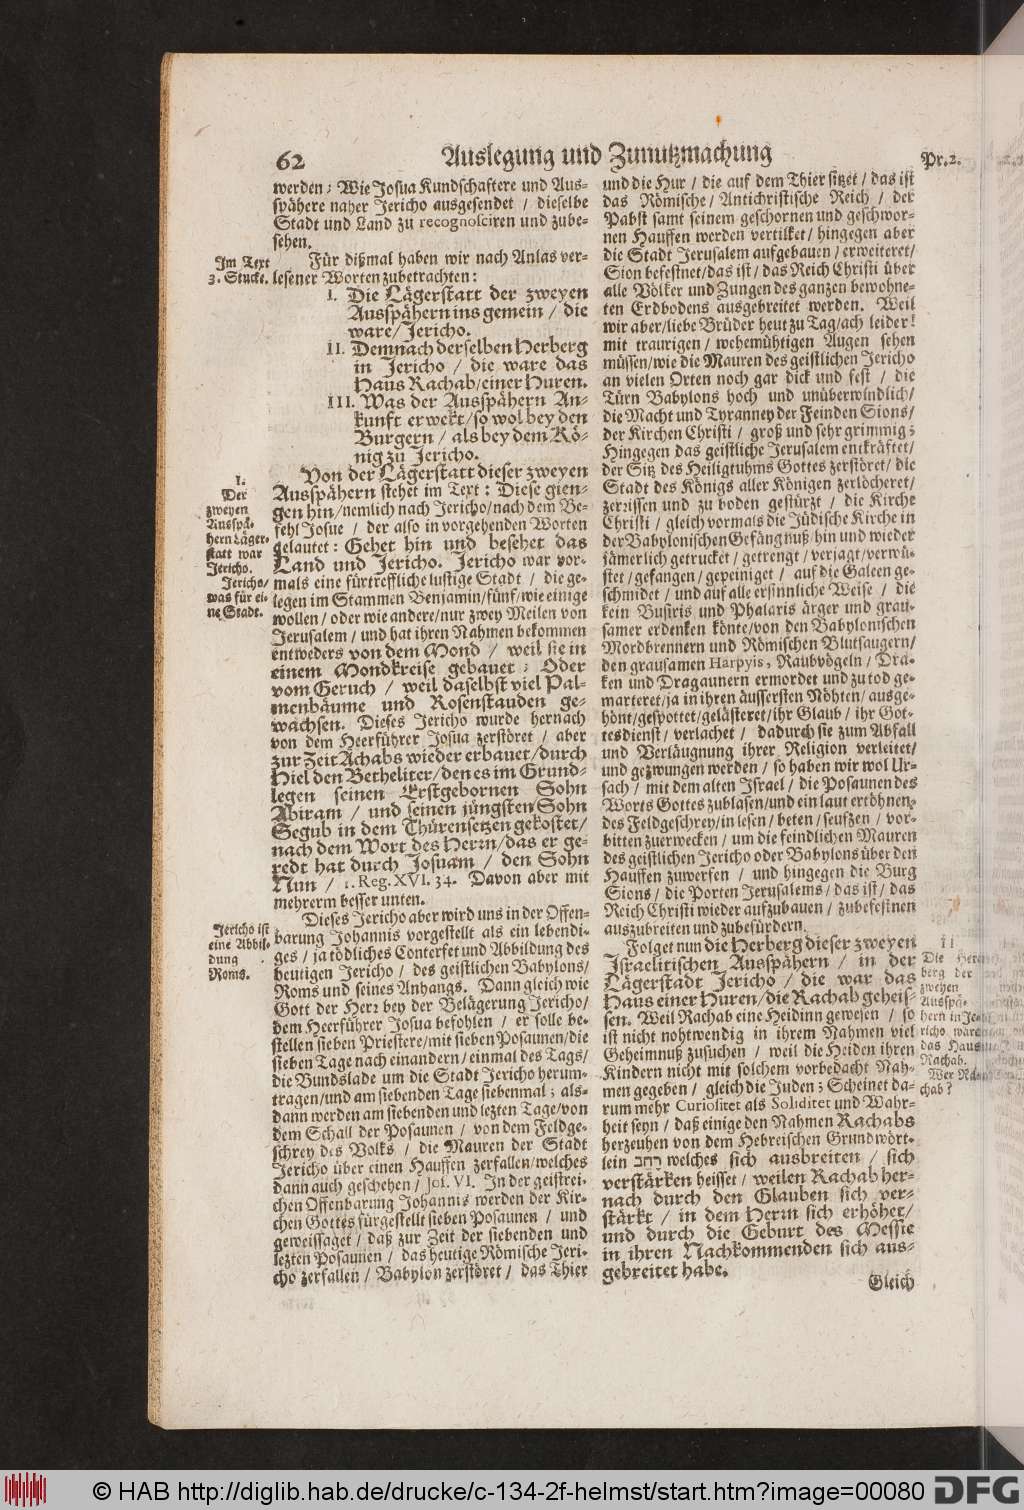 62
Auslegung und Zunutzmachung
Pr. 2.
werden; Wie Josua Kundschaftere und Aus-
spähere naher Jericho ausgesendet / dieselbe
Stadt und Land zu recognosciren und zube-
sehen.
Im Text
3. Stucke.
Für dißmal haben wir nach Anlas ver-
lesener Worten zubetrachten:
I. Die Lägerstatt der zweyen
Ausspähern ins gemein / die
ware / Jericho.
II. Demnach derselben Herberg
in Jericho / die ware das
Haus Rachab / einer Huren.
III. Was der Ausspähern An-
kunft erwekt / so wol bey den
Burgern / als bey dem Kö-
nig zu Jericho.
I.
Der
zweyen
Ausspä-
hern Läger-
statt war
Jericho.
Jericho /
was für ei-
ne Stadt.
Von der Lägerstatt dieser zweyen
Ausspähern stehet im Text: Diese gien-
gen hin / nemlich nach Jericho / nach dem Be-
fehl Josue / der also in vorgehenden Worten
gelautet: Gehet hin und besehet das
Land und Jericho. Jericho war vor-
mals eine fürtreffliche lustige Stadt / die ge-
legen im Stammen Benjamin / fünf / wie einige
wollen / oder wie andere / nur zwey Meilen von
Jerusalem / und hat ihren Nahmen bekommen
entweders von dem Mond / weil sie in
einem Mondkreise gebauet; Oder
vom Geruch / weil daselbst viel Pal-
menbäume und Rosenstauden ge-
wachsen. Dieses Jericho wurde hernach
von dem Heerführer Josua zerstöret / aber
zur Zeit Achabs wieder erbauet / durch
Hiel den Betheliter / den es im Grund-
legen seinen Erstgebornen Sohn
Abiram / und seinen jüngsten Sohn
Segub in dem Thürensetzen gekostet /
nach dem Wort des Herrn / das er ge-
redt hat durch Josuam / den Sohn
Nun / 1. Reg. XVI. 34. Davon aber mit
mehrerm besser unten.
Jericho ist
eine Abbil-
dung
Roms.
Dieses Jericho aber wird uns in der Offen-
barung Johannis vorgestellt als ein lebendi-
ges / ja tödliches Conterfet und Abbildung des
heutigen Jericho / des geistlichen Babylons /
Roms und seines Anhangs. Dann gleich wie
Gott der Herr bey der Belägerung Jericho /
dem Heerführer Josua befohlen / er solle be-
stellen sieben Priestere / mit sieben Posaunen / die
sieben Tage nach einandern / einmal des Tags /
die Bundslade um die Stadt Jericho herum-
tragen / und am siebenden Tage siebenmal; als-
dann werden am siebenden und lezten Tage / von
dem Schall der Posaunen / von dem Feldge-
schrey des Volks / die Mauren der Stadt
Jericho über einen Hauffen zerfallen / welches
dann auch geschehen / Jos. VI. In der geistrei-
chen Offenbarung Johannis werden der Kir-
chen Gottes fürgestellt sieben Posaunen / und
geweissaget / daß zur Zeit der siebenden und
lezten Posaunen / das heutige Römische Jeri-
cho zerfallen / Babylon zerstöret / das Thier
und die Hur / die auf dem Thier sitzet / das ist
das Römische / Antichristische Reich / der
Pabst samt seinem geschornen und geschwor-
nen Hauffen werden vertilket / hingegen aber
die Stadt Jerusalem aufgebauen / erweiteret /
Sion befestnet / das ist / das Reich Christi über
alle Völker und Zungen des ganzen bewohne-
ten Erdbodens ausgebreitet werden. Weil
wir aber / liebe Brüder heut zu Tag / ach leider!
mit traurigen / wehemühtigen Augen sehen
müssen / wie die Mauren des geistlichen Jericho
an vielen Orten noch gar dick und fest / die
Türn Babylons hoch und unüberwindlich /
die Macht und Tyranney der Feinden Sions /
der Kirchen Christi / groß und sehr grimmig;
Hingegen das geistliche Jerusalem entkräftet /
der Sitz des Heiligtuhms Gottes zerstöret / die
Stadt des Königs aller Königen zerlöcheret /
zerrissen und zu boden gestürzt / die Kirche
Christi / gleich vormals die Jüdische Kirche in
der Babylonischen Gefängnuß hin und wieder
jämerlich getrucket / getrengt / verjagt / verwü-
stet / gefangen / gepeiniget / auf die Galeen ge-
schmidet / und auf alle ersinnliche Weise / die
kein Busiris und Phalaris ärger und grau-
samer erdenken könte / von den Babylonischen
Mordbrennern und Römischen Blutsaugern /
den grausamen Harpyis, Raubvögeln / Dra-
ken und Dragaunern ermordet und zu tod ge-
marteret / ja in ihren äussersten Nöhten / ausge-
hönt / gespottet / gelästeret / ihr Glaub / ihr Got-
tesdienst / verlachet / dadurch sie zum Abfall
und Verläugnung ihrer Religion verleitet /
und gezwungen werden / so haben wir wol Ur-
sach / mit dem alten Israel / die Posaunen des
Worts Gottes zublasen / und ein laut ertöhnen-
des Feldgeschrey / in lesen / beten / seufzen / vor-
bitten zuerwecken / um die feindlichen Mauren
des geistlichen Jericho oder Babylons über den
Hauffen zuwerfen / und hingegen die Burg
Sions / die Porten Jerusalems / das ist / das
Reich Christi wieder aufzubauen / zubefestnen
auszubreiten und zubefürdern.
Folget nun die Herberg dieser zweyen
Israelitischen Ausspähern / in der
Lägerstadt Jericho / die war das
Haus einer Huren / die Rachab geheis-
sen. Weil Rachab eine Heidinn gewesen / so
ist nicht nohtwendig in ihrem Nahmen viel
Geheimnuß zusuchen / weil die Heiden ihren
Kindern nicht mit solchem vorbedacht Nah-
men gegeben / gleich die Juden; Scheinet da-
rum mehr Curiositet als Soliditet und Wahr-
heit seyn / daß einige den Nahmen Rachabs
herzeuhen von dem Hebreischen Grundwört-
lein רחב welches sich ausbreiten / sich
verstärken heisset / weilen Rachab her-
nach durch den Glauben sich ver-
stärkt / in dem Herrn sich erhöhet /
und durch die Geburt des Messie
in ihren Nachkommenden sich aus-
gebreitet habe.
II
Die Her-
berg der
zweyen
Ausspä-
hern in Je-
richo ware
das Haus
Rachab.
Wer Ra-
chab?
Gleich
© HAB http://diglib.hab.de/drucke/c-134-2f-helmst/start.htm?image=00080
DFG